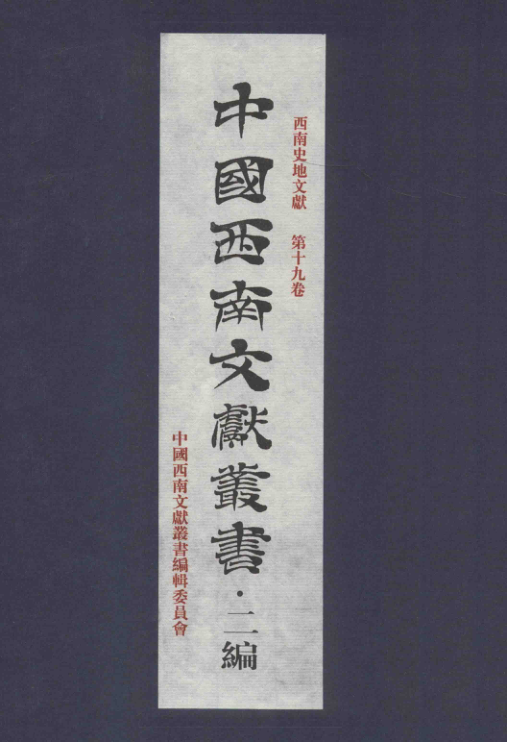 西南史地文獻 第十九卷
中國西南文獻叢書·二編
中國西南文獻叢書編輯委員會